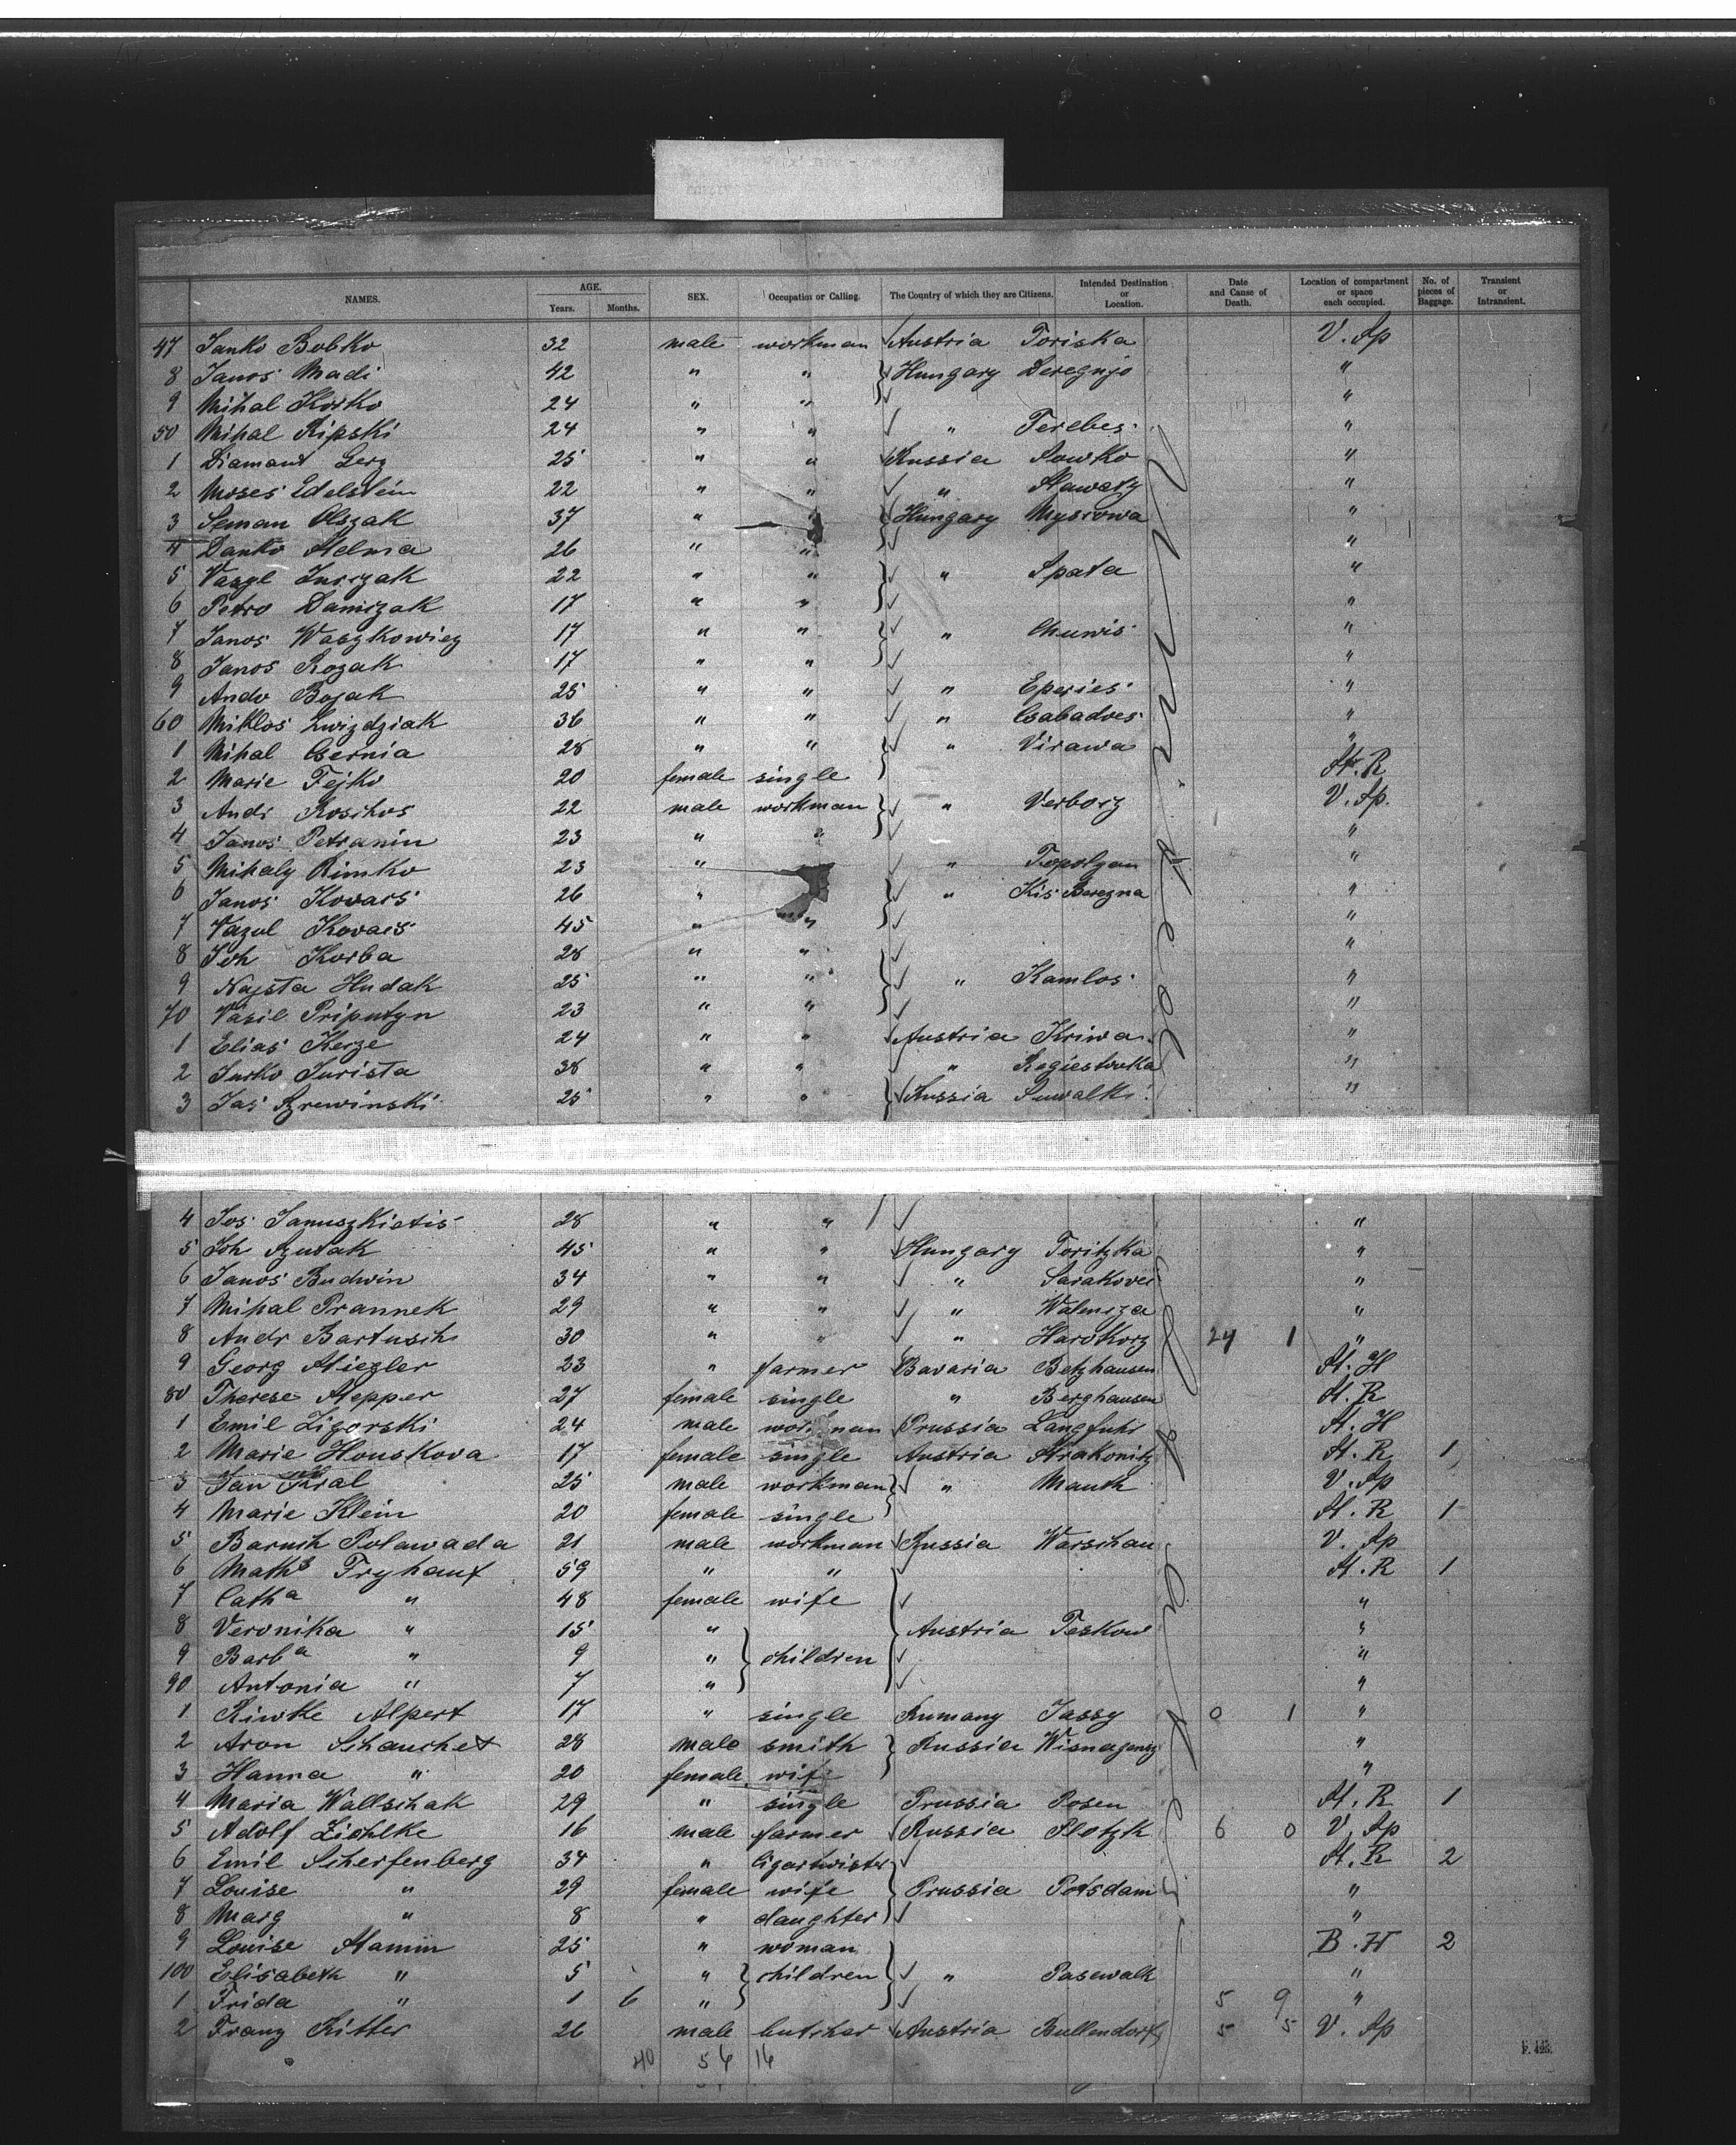 NAMES. AGE. Years. Months. SEX. Occupation or Calling. The Country of which they are Citizens. Intended Destination or Location. Date and Cause of Death. Location of compartment or space each occupied. No. of pieces of Baggage. Transient or Intransient.
47 Janko Bobko 32 male workman Austria Toriska V. Sp
8 Janos Madi 42 " " Hungary Deregnjo "
9 Mihal Korko 24 " " "
50 Mihal Ripski 24 " " " Terebes "
1 Diamant Gerz 25 " " Russia Sowko "
2 Moses Edelstein 22 " " " Slawaty "
3 Seman Olszak 37 " " Hungary Myscowa "
4 Danko Stelma 26 " " "
5 Vasyl Jurszak 22 " " " Spata "
6 Petro Damszak 17 " " "
7 Janos Waszkowicz 17 " " " Chuwis "
8 Janos Kozak 17 " " "
9 Ando Bojak 25 " " " Eperies "
60 Miklos Zwizdziak 36 " " " Csabadoes "
1 Mihal Csernia 28 " " " Virawa "
2 Marie Fejko 20 female single St. R
3 Andr Roschos 22 male workman " Verborz V. Sp.
4 Janos Petranin 23 " " "
5 Mihaly Rimko 23 " " Topolyan "
6 Janos Kovacs 26 " " Kis Berezna "
7 Vazul Kovacs 45 " " "
8 Joh Korba 28 " " "
9 Najsta Hudak 25 " " " Kamlos "
70 Vasil Priputyn 23 " " "
1 Elias Kerze 24 " " Austria Kriwa "
2 Jurko Jurista 38 " " " Regiestowka "
3 Jas Szrewinski 25 " " Russia Suwalki "
4 Jos Januszkietis 28 " " "
5 Joh Szutak 45 " " Hungary Toritzka "
6 Janos Budwin 34 " " " Sarakovei "
7 Mihal Prannek 29 " " " Walmsza "
8 Andr Bartusch 30 " " " Harotkorz 24 1 "
9 Georg Stiegler 23 " farmer Bavaria Betzhausen St. H
80 Therese Stepper 27 female single " Berghausen St. R
1 Emil Zigorski 24 male workman Prussia Langfuhr St. H
2 Marie Houskova 17 female single Austria Strakonitz St. R 1
3 Jan Kral 25 male workman " Mauth V. Sp
4 Marie Klein 20 female single St. R 1
5 Baruch Polawada 21 male workman Russia Warschau V. Sp
6 Maths Fryhauf 59 " " St. R 1
7 Catha " 48 female wife "
8 Veronika " 15 " Austria Teskow "
9 Barba " 9 " children "
90 Antonia " 7 " "
1 Riwke Alpert 17 " single Rumany Jassy 0 1 "
2 Aron Schauchet 28 male smith Russia "
3 Hanna " 20 female wife "
4 Maria Wallschak 29 " single Prussia Posen St. R 1
5 Adolf Zichlke 16 male farmer Russia Plotzk 6 0 V. Sp
6 Emil Scherfenberg 34 " Cigartwister St. R 2
7 Louise " 29 female wife Prussia Potsdam "
8 Marg " 8 " daughter "
9 Louise Stamm 25 " woman B. H 2
100 Elisabeth " 5 " children " Pasewalk "
1 Frida " 1 6 " 5 9 "
2 Franz Ritter 26 male butcher Austria Bullendorf 5 5 V. Sp
40 56 16
F. 425.